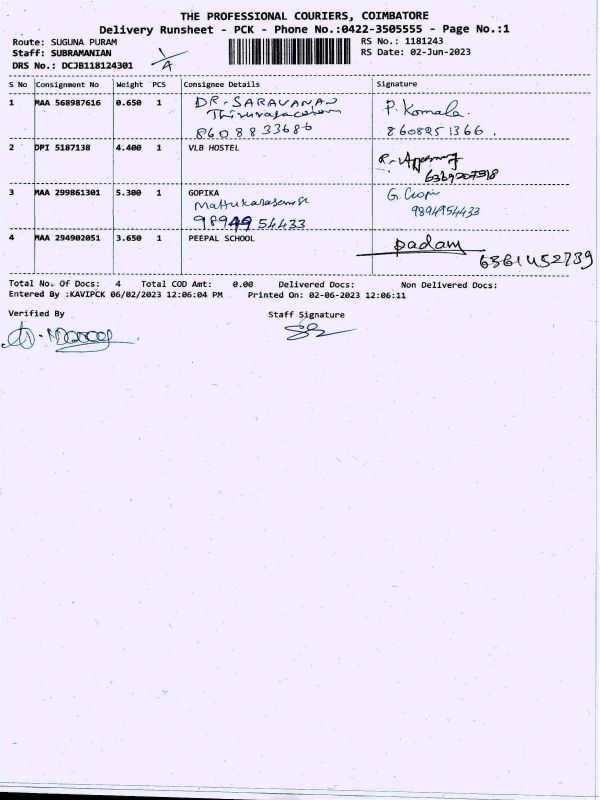 THE PROFESSIONAL COURIERS, COIMBATORE
Delivery Runsheet - PCK - Phone No.:0422-3505555 - Page No.:1
Route: SUGUNA PURAM
RS No.: 1181243
Staff: SUBRAMANIAN
RS Date: 02-Jun-2023
DRS No.: DCJB118124301
S No Consignment No Weight PCS Consignee Details Signature
1 MAA 568987616 0.650 1 DR. SARAVANAN P. Komala.
8608833686 8608951366.
2 DPI 5187138 4.400 1 VLB HOSTEL
3 MAA 299861301 5.300 1 GOPIKA G. Gopi
9894954433 9894954433
4 MAA 294902051 3.650 1 PEEPAL SCHOOL padam
Total No. Of Docs: 4 Total COD Amt: 0.00 Delivered Docs: Non Delivered Docs:
Entered By :KAVIPCK 06/02/2023 12:06:04 PM Printed On: 02-06-2023 12:06:11
Verified By Staff Signature